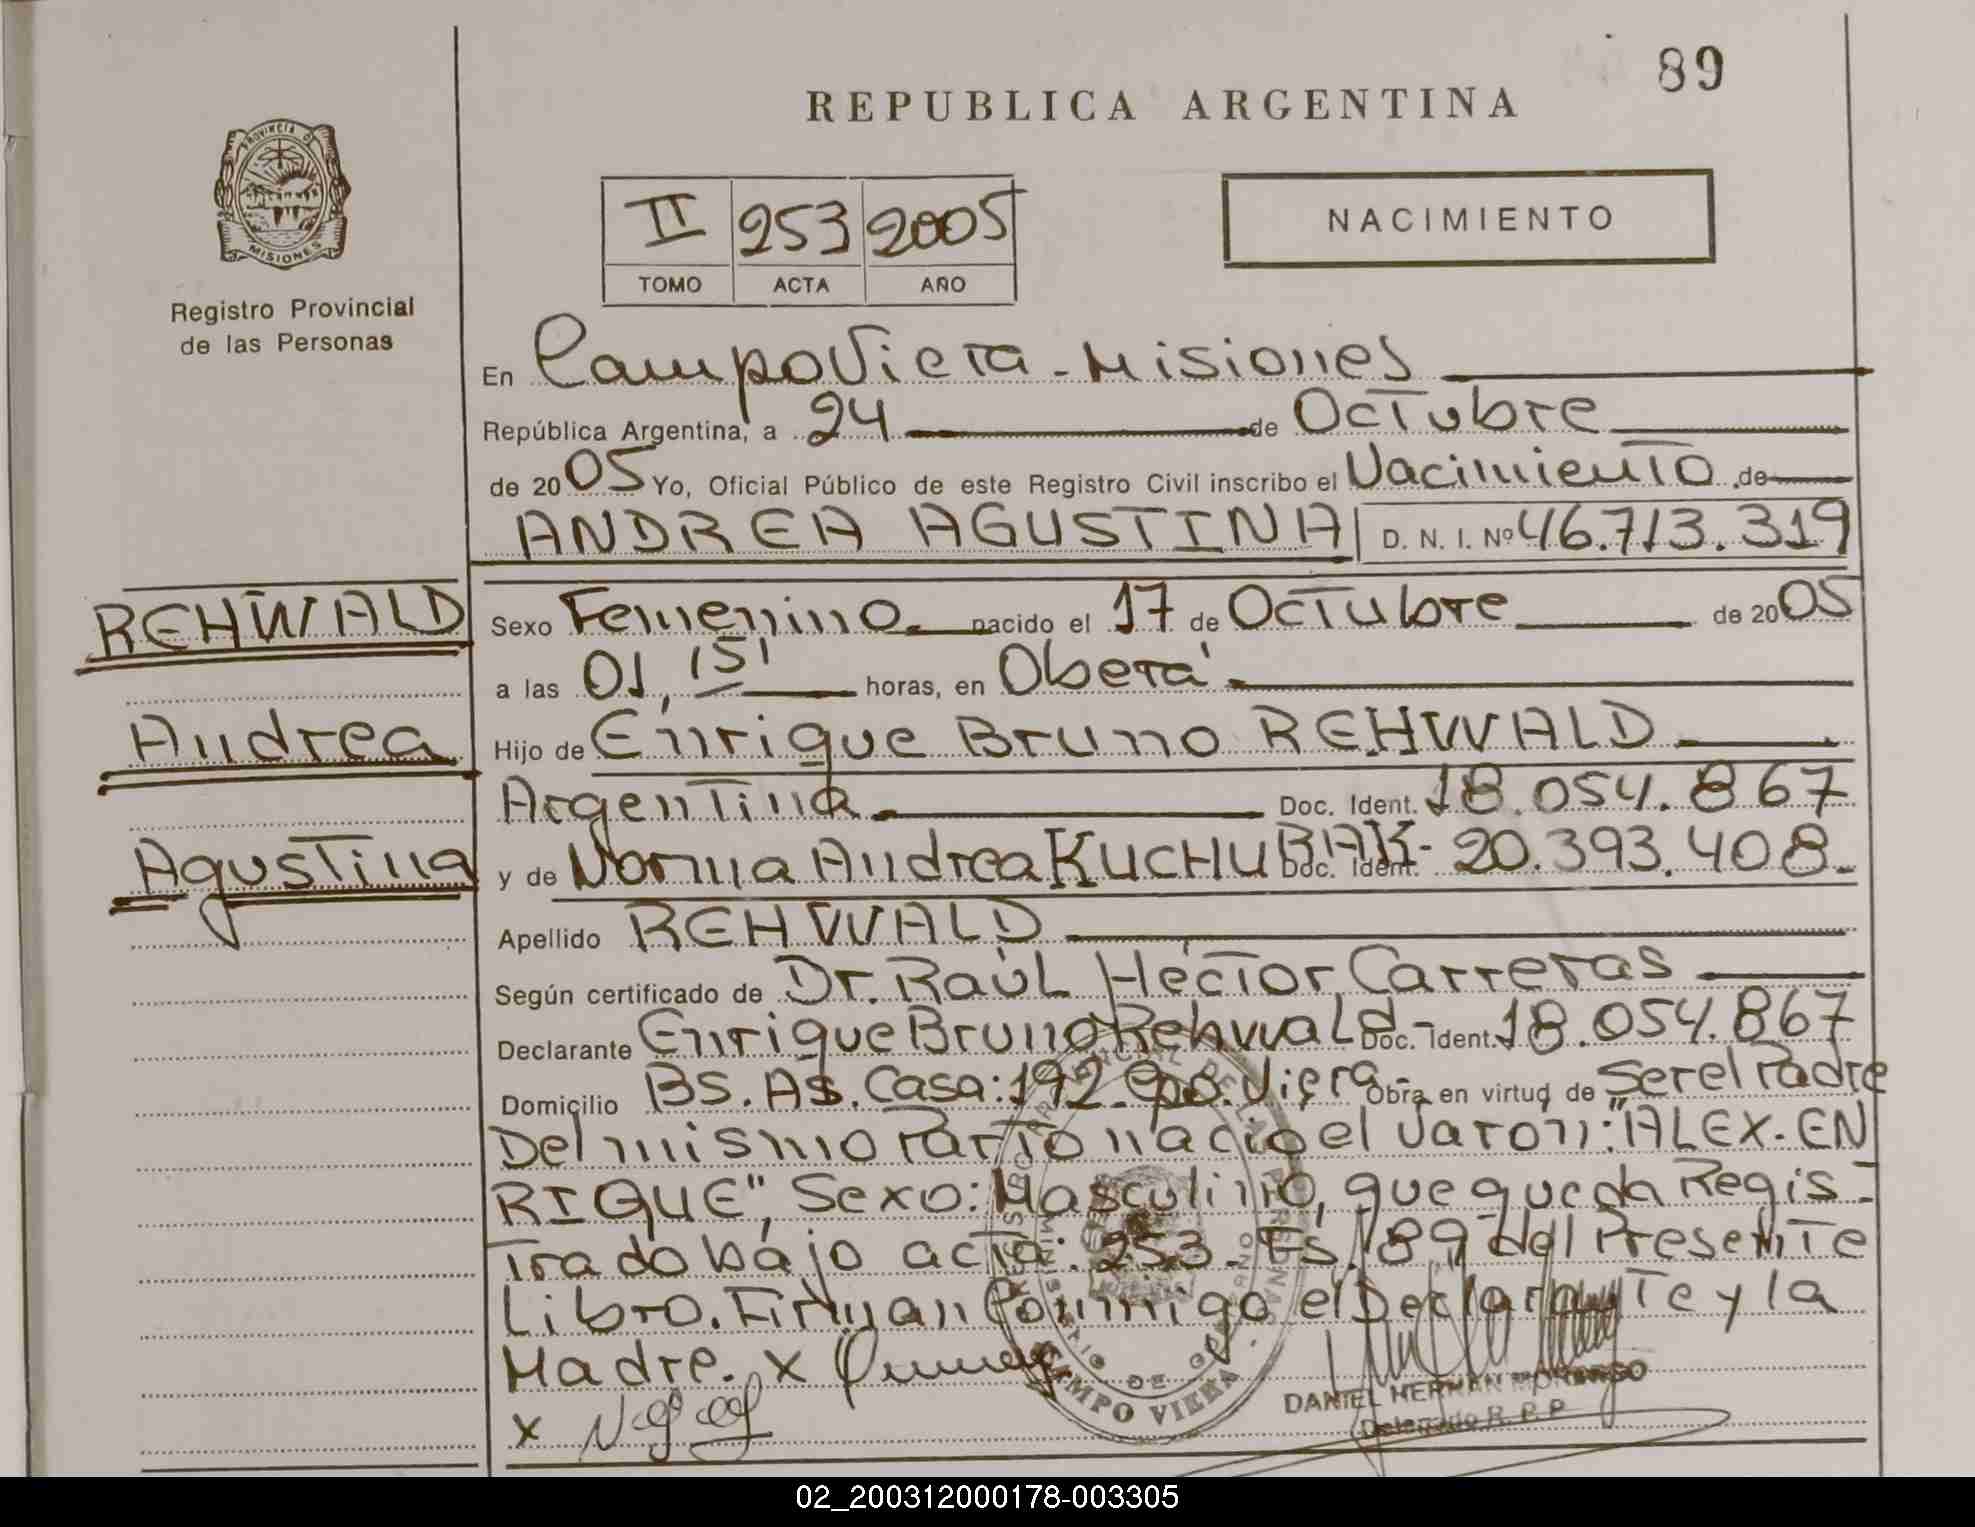 89
REPUBLICA ARGENTINA
PROVINCIA DE
MISIONES
II 253 2005
TOMO ACTA AÑO
NACIMIENTO
Registro Provincial
de las Personas
En CampoViera - Misiones
República Argentina, a 24 de Octubre
de 2005 Yo, Oficial Público de este Registro Civil inscribo el Nacimiento de
ANDREA AGUSTINA D. N. I. Nº 46.713.319
REHWALD
Andrea
Agustina
Sexo Femenino nacido el 17 de Octubre de 2005
a las 01,15' horas, en Oberá
Hijo de Enrique Bruno REHWALD
Argentina Doc. Ident. 18.054.867
y de Norma Andrea KUCHUBAK- Doc. Ident. 20.393.408
Apellido REHWALD
Según certificado de Dr. Raúl Héctor Carreras
Declarante Enrique Bruno Rehwald- Doc. Ident. 18.054.867
Domicilio BS. As. Casa: 192 - Cpo. Viera- Obra en virtud de Ser el Padre
Del mismo Parto nacio el Varon: "ALEX-EN
RIQUE", Sexo: Masculino, que queda Regis-
Trado bajo acta: 253 Fs. 189 del Presente
Libro. Firman Conmigo el Declarante y la
Madre. x
x
CAMPO VIERA
DANIEL HERNAN
Delegado R. P. P
02_200312000178-003305